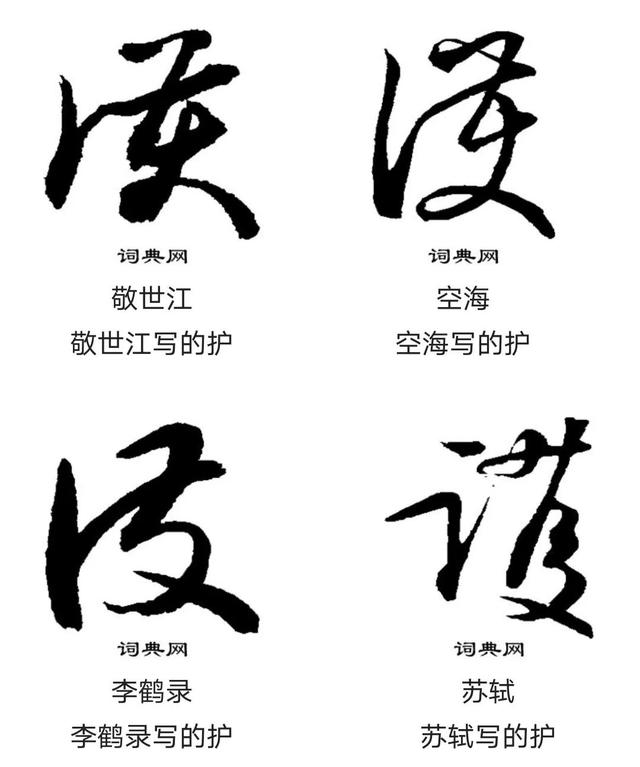 護 護
词典网 词典网
敬世江 空海
敬世江写的护 空海写的护
護 護
词典网 词典网
李鹤录 苏轼
李鹤录写的护 苏轼写的护